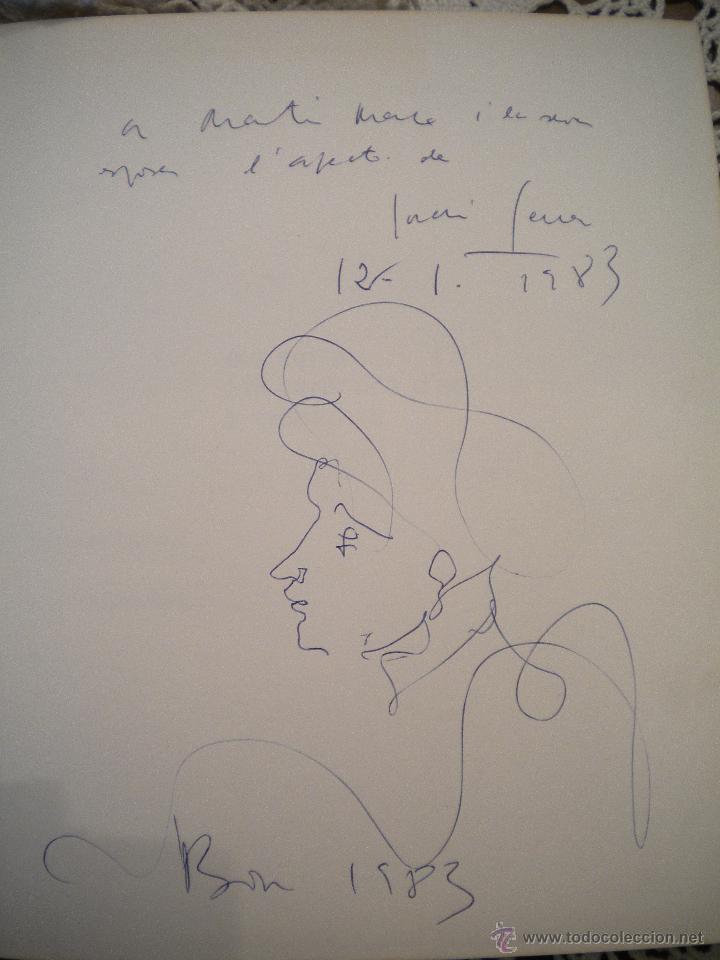 a Martí Masó i la seva
esposa l'afecte de
Jordi Serra
12- 1. 1983
Bon 1983
www.todocoleccion.net